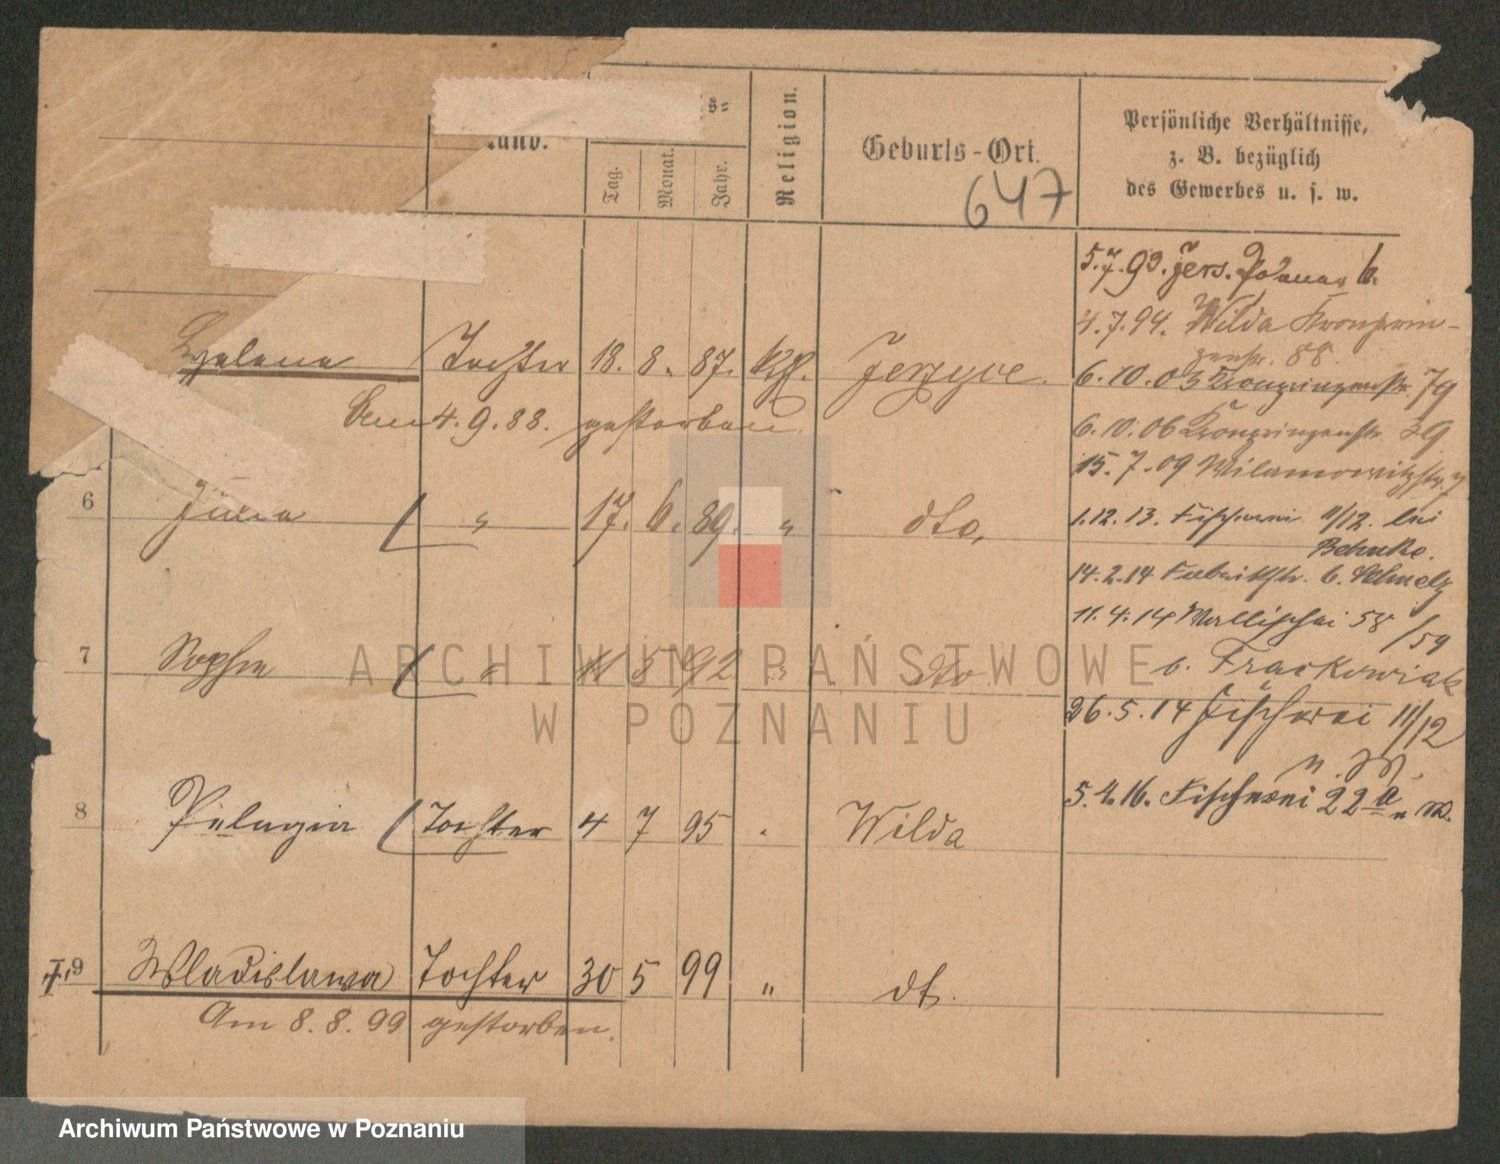 Tag.
Monat.
Jahr.
Religion.
Geburts-Ort.
Persönliche Verhältnisse,
z. B. bezüglich
des Gewerbes u. s. w.
647
5.7.93. Jers. Posenerstr. 6.
4.7.94. Wilda Kronprin-
zenstr. 88.
Helena Tochter 18. 8. 87. kth. Jerzyce.
6.10.03 Kronprinzenstr. 79
Am 4.9.88. gestorben.
6.10.06 Kronprinzenstr. 39
15.7.09 Wilamowitzstr. 7
6 " 17. 6. 89. " dto,
1.12.13. Fischerei 11/12. bei
Behnke.
14.2.14 Fabrikstr. 6. Schmelz
11.4.14 Wallischei 58/59
7 Sophie " 11 5 92 " dto
b. Frackowiak
26.5.14 Fischerei 11/12
n. W.
8 Pelagia Tochter 4 7 95 " Wilda
5.4.16. Fischerei 22a n. W.
9 Wladislawa Tochter 30 5 99 " dt.
Am 8.8.99 gestorben.
ARCHIWUM PAŃSTWOWE
W POZNANIU
Archiwum Państwowe w Poznaniu